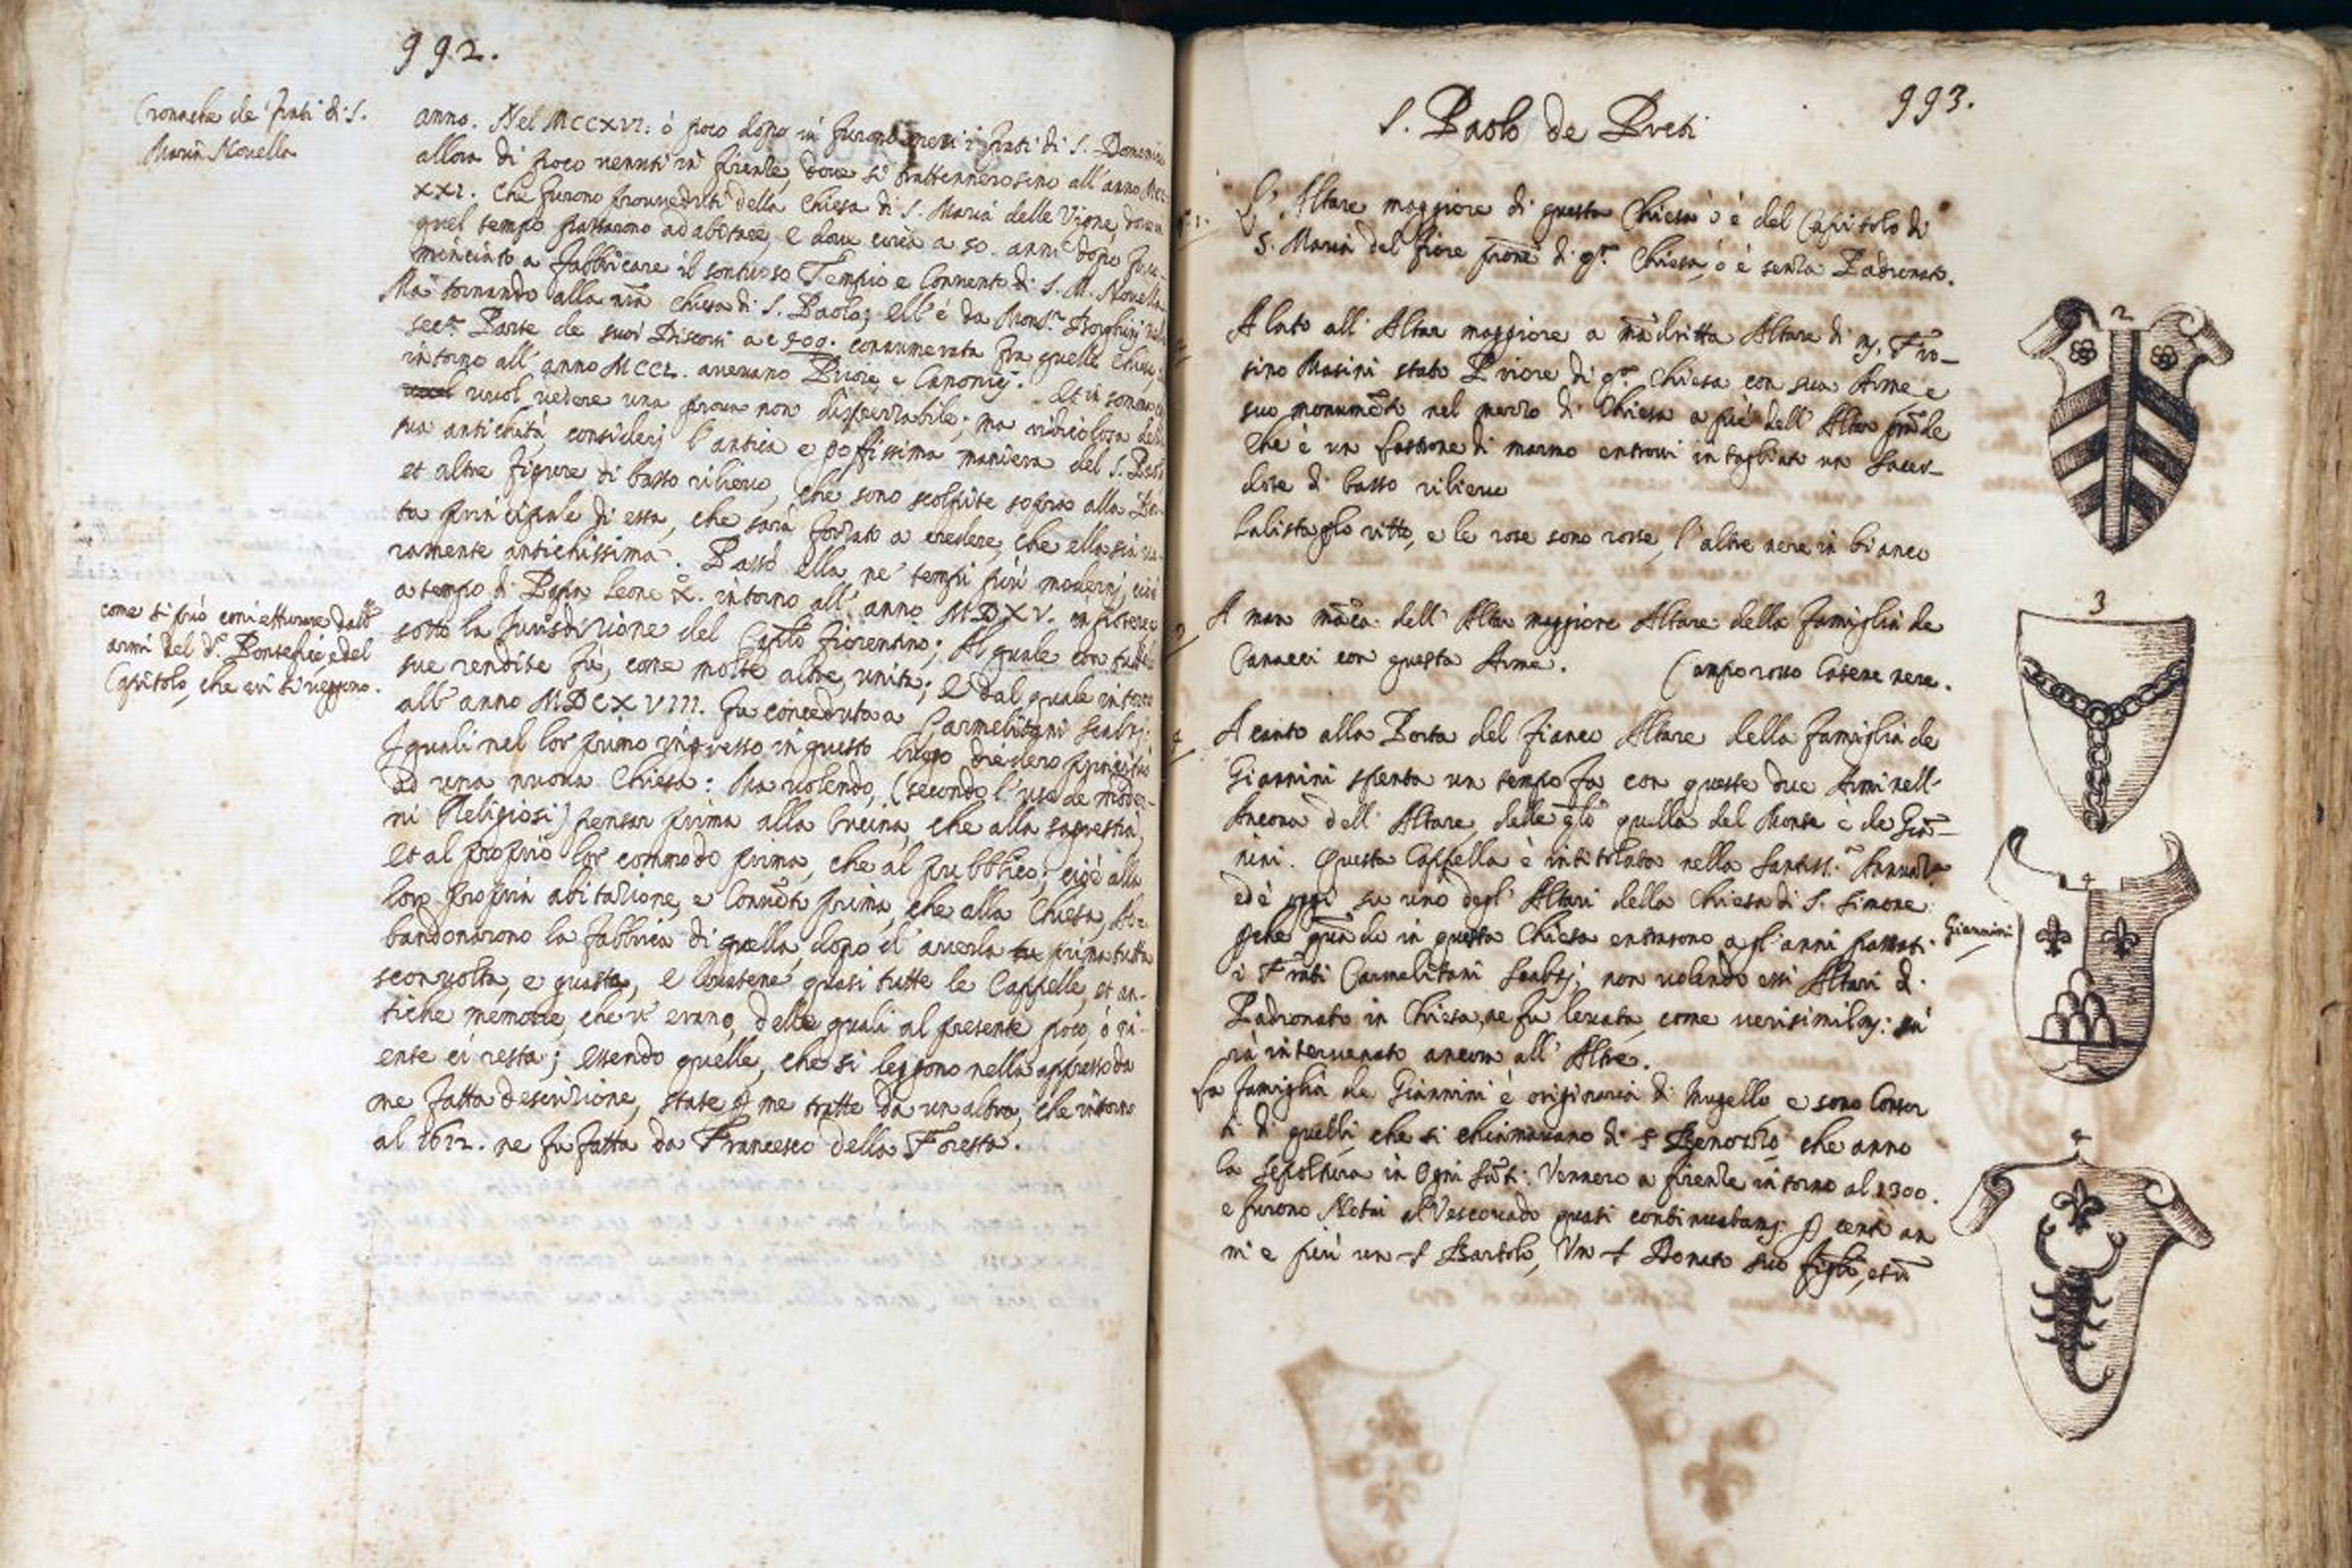 992.
Cronache de frati di S.
Maria Novella
anno. Nel MCCXVI: ò poco dopo vi furono messi i frati di S. Domenico
allora di poco venuti in firenze, dove si trattennero sino all' anno
XXI. che furono provveduti della Chiesa di S. Maria delle Vigne, dove in
quel tempo passarono ad abitare, e dove circa a 50. anni dopo fu co-
minciato a fabbricare il sontuoso Tempio e Convento di S. M. Novella.
Ma tornando alla nrã chiesa di S. Paolo; ell' è da Mons.r Borghini nella
sec.da Parte de suoi Discorsi a c 409. connumerata fra quelle Chiese, che
intorno all' anno MCCL. avevano Priore e Canonici. Et in somma chi
vuol vedere una prova non disprezzabile; ma ridicolosa della
sua antichità, consideri l' antica e goffissima maniera del S. Paolo
et altre figure di basso rilievo, che sono scolpite sopra alla Por-
ta principale di essa, che sarà forzato a credere, che ella sia ve-
ramente antichissima. Passò ella ne' tempi più moderni, cioè
a tempo di Papa Leone X. intorno all' anno MDXV. in potere e
sotto la Jurisdizione del Capito Fiorentino; Al quale con tutte le
sue rendite fù, come molte altre, unita; E dal quale intorno
all' anno MDCXVIII. fu conceduta a Carmelitani Scalzi:
I quali nel lor primo ingresso in questo luogo diedero principio
ad una nuova Chiesa: Ma volendo, (secondo l' uso de moder-
ni Religiosi) pensar prima alla cucina, che alla sagrestia,
et al proprio lor commodo prima, che al pubblico; cioè alla
lor propria abitazione, e Convẽto prima, che alla Chiesa, Ab-
bandonarono la fabbrica di quella, dopo d' averla prima tutta
sconvolta, e guasta, e levatene quasi tutte le Cappelle, et an-
tiche memorie, che v' erano, delle quali al presente poco, ò ni-
ente ci resta; essendo quelle, che si leggono nella appresso da
me fatta descrizione, state p me tratte da un altra, che intorno
al 1612. ne fu fatta da Francesco della Foresta.
come si può conietturare dall'
armi del d.o Pontefice, e del
Capitolo, che vi si veggono.
993.
S. Paolo de Preti
1. L' Altare maggiore di questa Chiesa ò è del Capitolo di
S. Maria del fiore prone di q.ta Chiesa, ò è senza Padronato.
2 A lato all' Altar maggiore a mã dritta Altare di m. Fro-
sino Masini stato Priore di q.ta Chiesa con sua Arme e
suo monumẽto nel mezzo di Chiesa a piè dell' Altar grãde
che è un lastrone di marmo entrovi intagliato un Sacer-
dote di basso rilievo
La lista p lo ritto, e le rose sono rosse, l' altre nere in bianco
3 A man mãca dell' Altar maggiore Altare della famiglia de
Canacci con questa Arme. Campo rosso Catene nere.
4 A canto alla Porta del fianco Altare della famiglia de
Giannini spenta un tempo fa con queste due Armi nell'
Ancona dell' Altare, delle qli quella del Monte è de Giã-
nini. Questa Cappella è intitolata nella Santiss.ma Annuziata
ed è oggi su uno degl' Altari della Chiesa di S. Simone:
pche quãdo in questa Chiesa entrarono a gl' anni passati
i Frati Carmelitani Scalzi, non volendo essi Altari di
Padronato in Chiesa, ne fu levata, come verisimilm: sa
rà intervenuto ancora all' Altre.
La famiglia de Giannini è originaria di Mugello, e sono Consor
ti di quelli, che si chiamavano di S Benozzo che anno
la sepoltura in Ogni Sãti: Vennero a firenze intorno al 1300.
e furono Notai al Vescovado quasi continuatam: p cento an
ni e più un S Bartolo, Un S Donato suo figlio, et ũ
2
3
4
Giannini
4